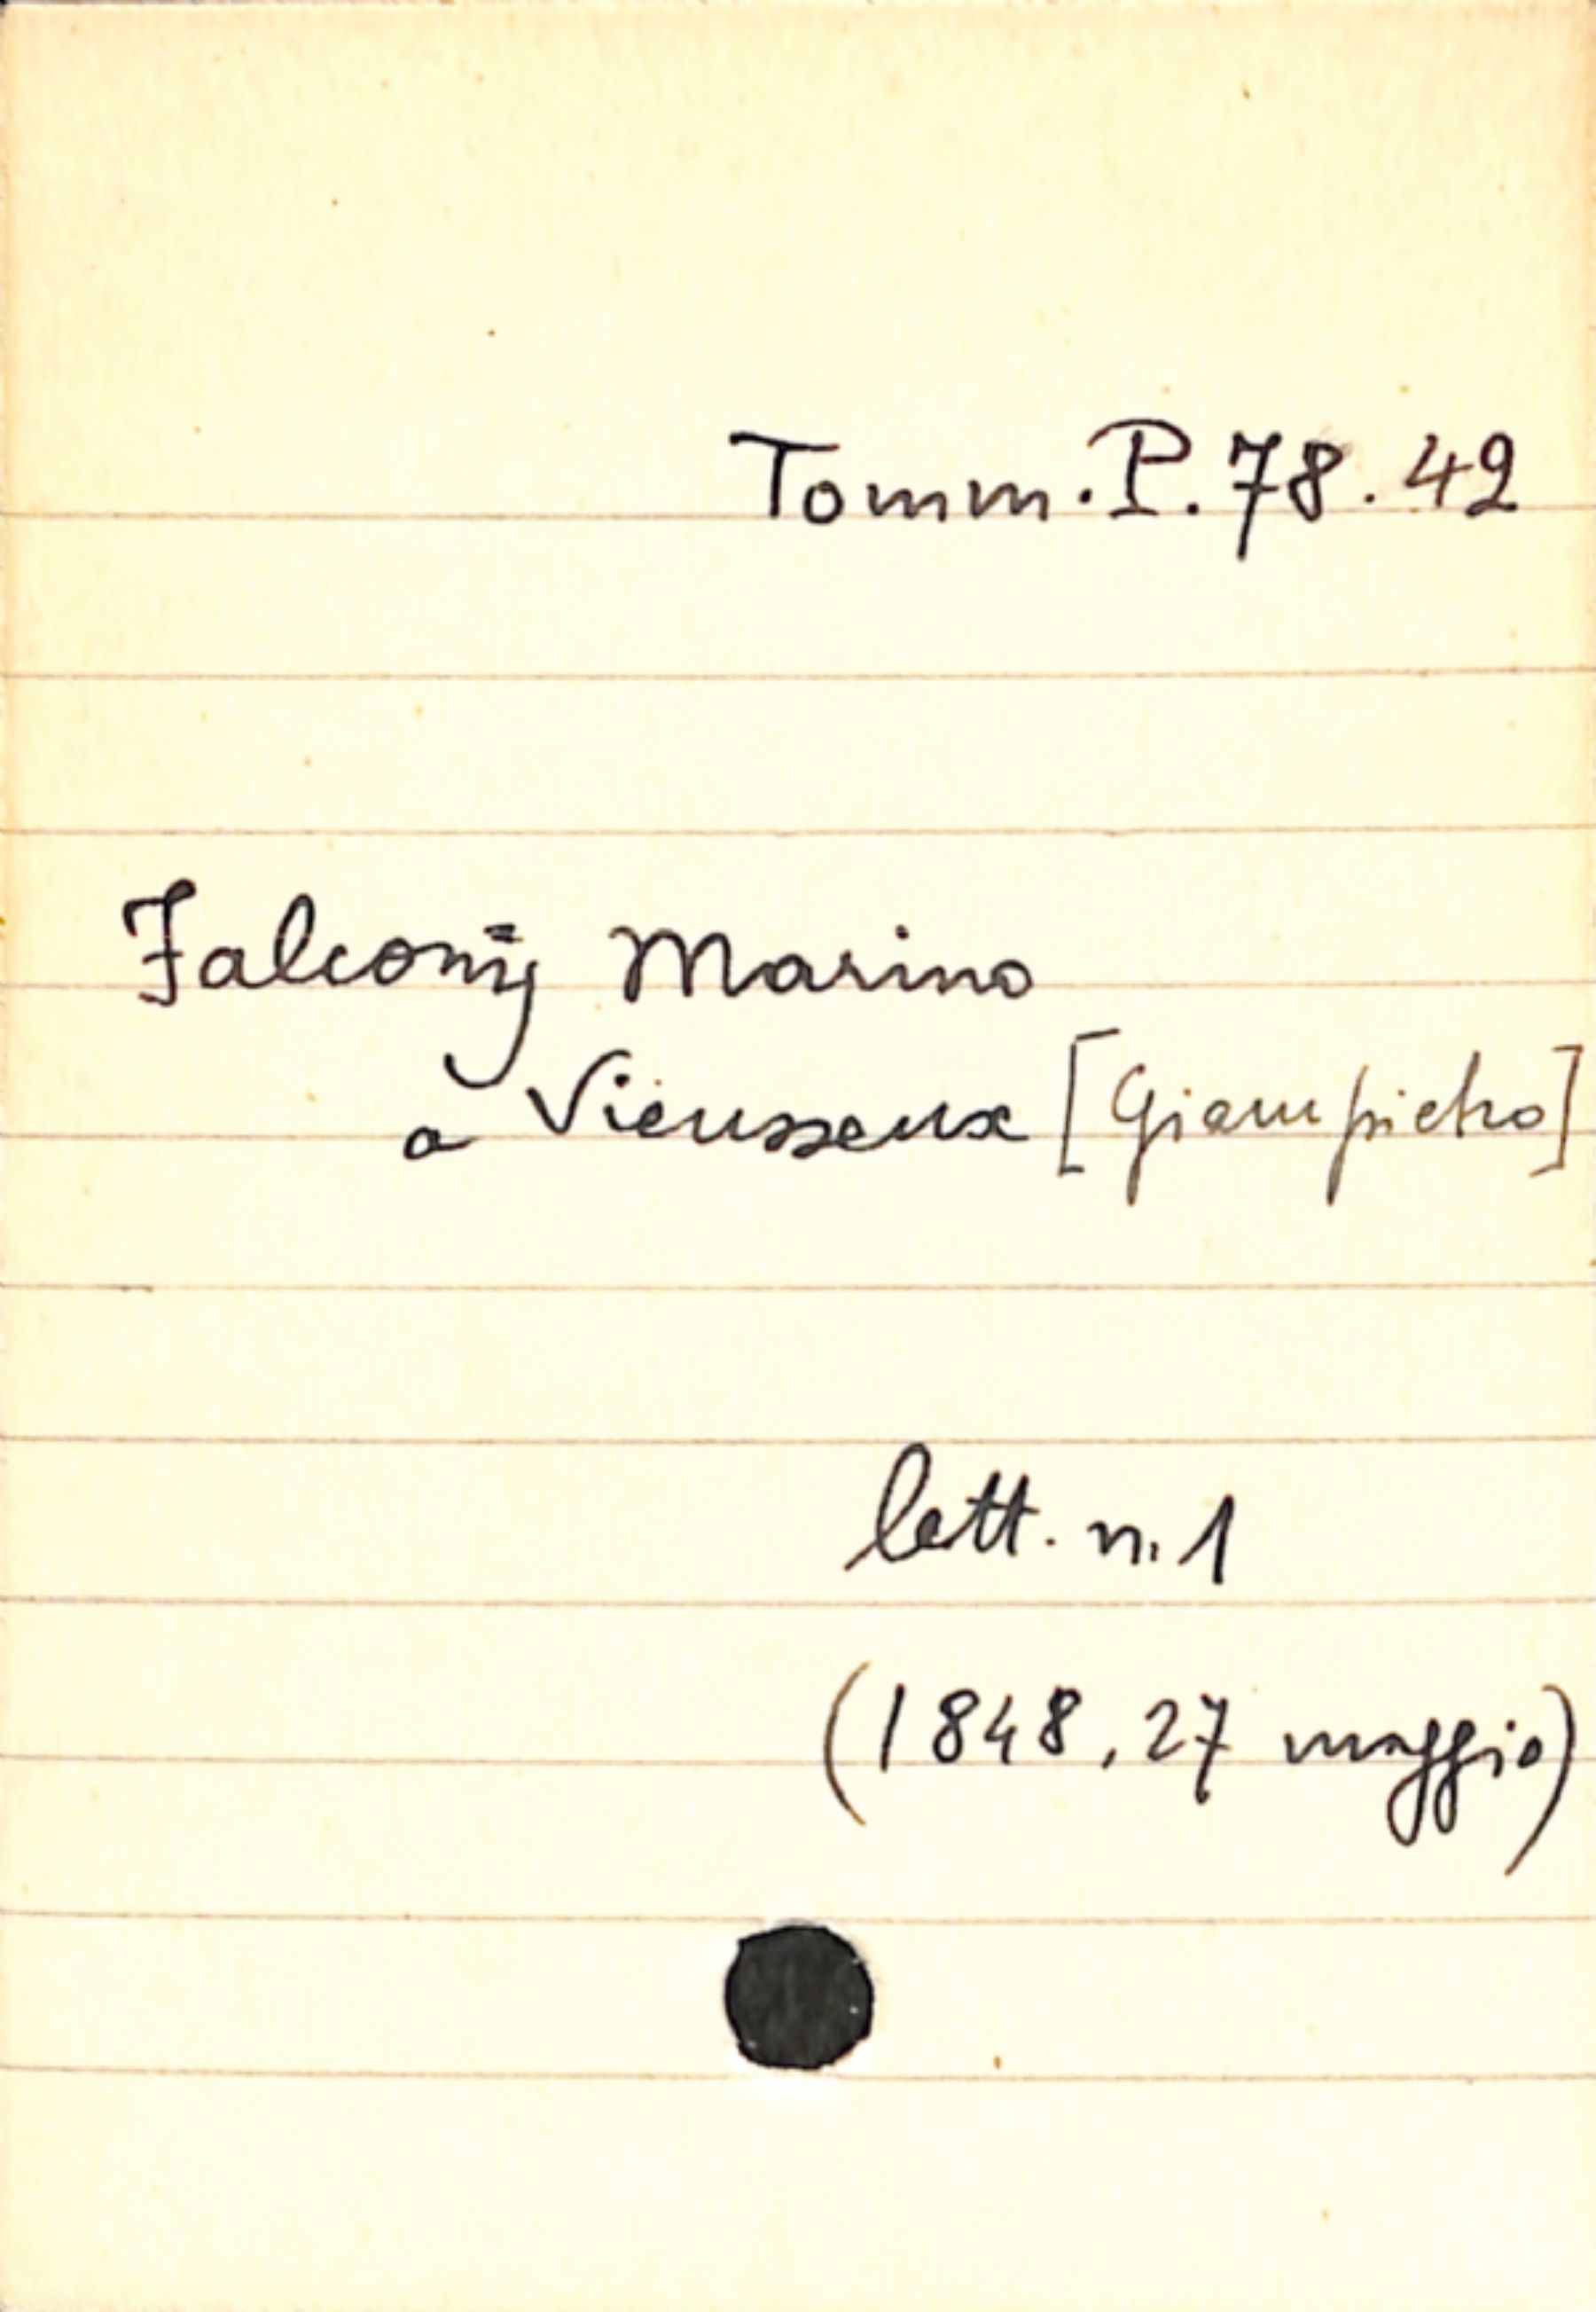 Tomm. P. 78. 42
Falconij Marino
a Vieusseux [Giampietro]
lett. n. 1
(1848, 27 maggio)